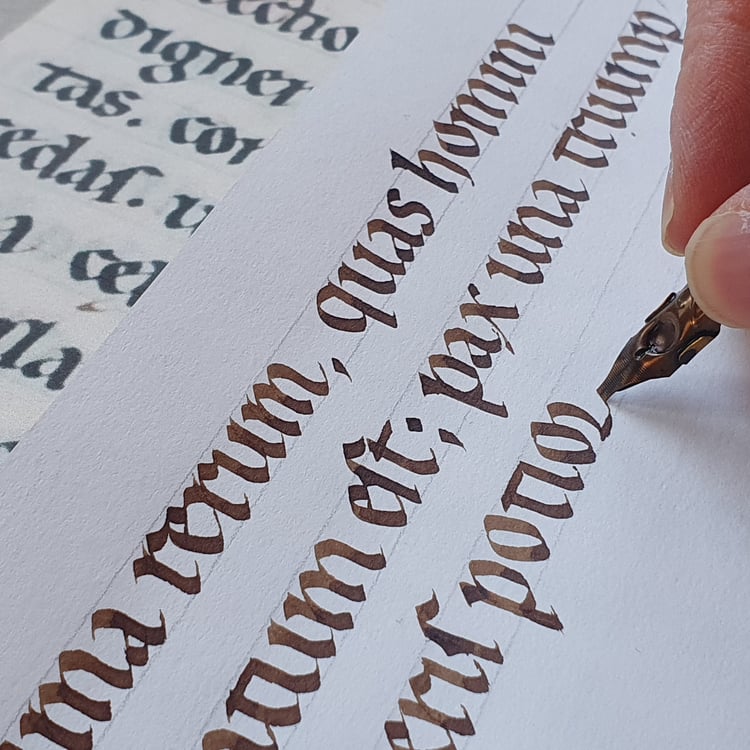 echo
digner
tas. cor
edaſ. u
a cea
la
ma rerum, quas homini
atum eſt; pax una triump
eriſ potio